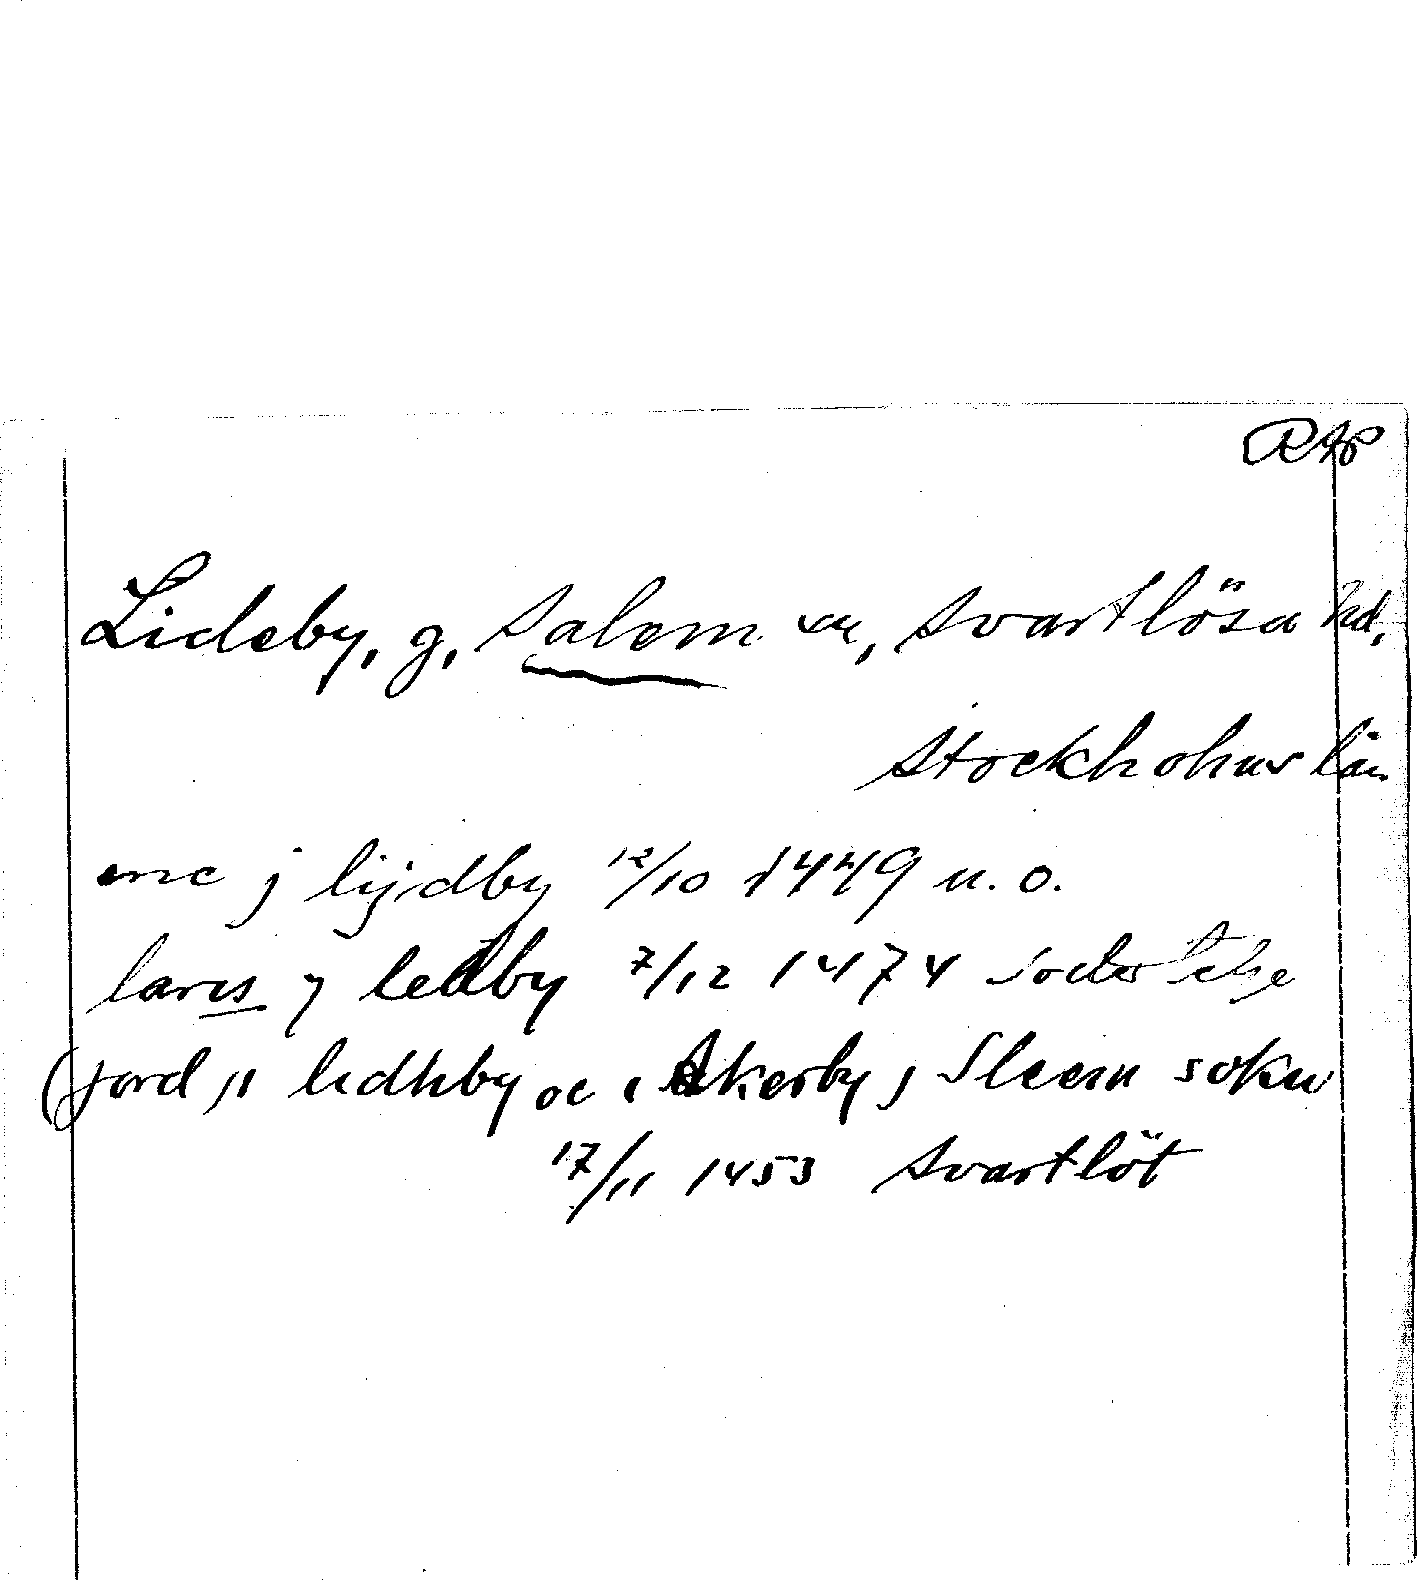 RAp
Lideby, g, Salem sn, Svartlösa hd,
Stockholms län
eric j lijdby 12/10 1449 u. o.
laris y ledby 7/12 1474 Södertelge
(jord) ii lidhby oc i Akerby j Sleem sokn
17/11 1453 Svartlöt